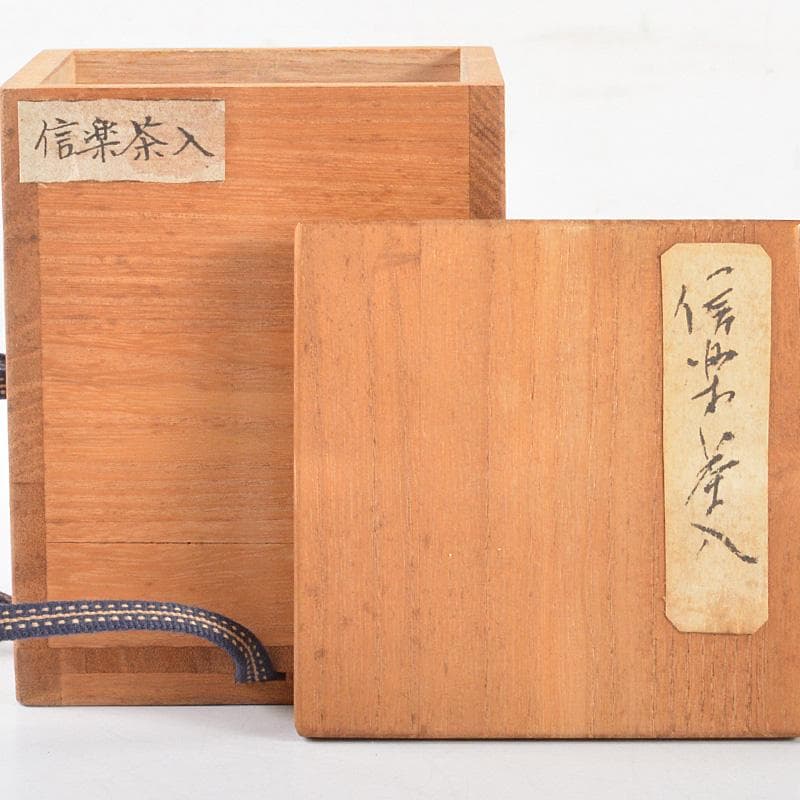 信楽茶入
信楽茶入